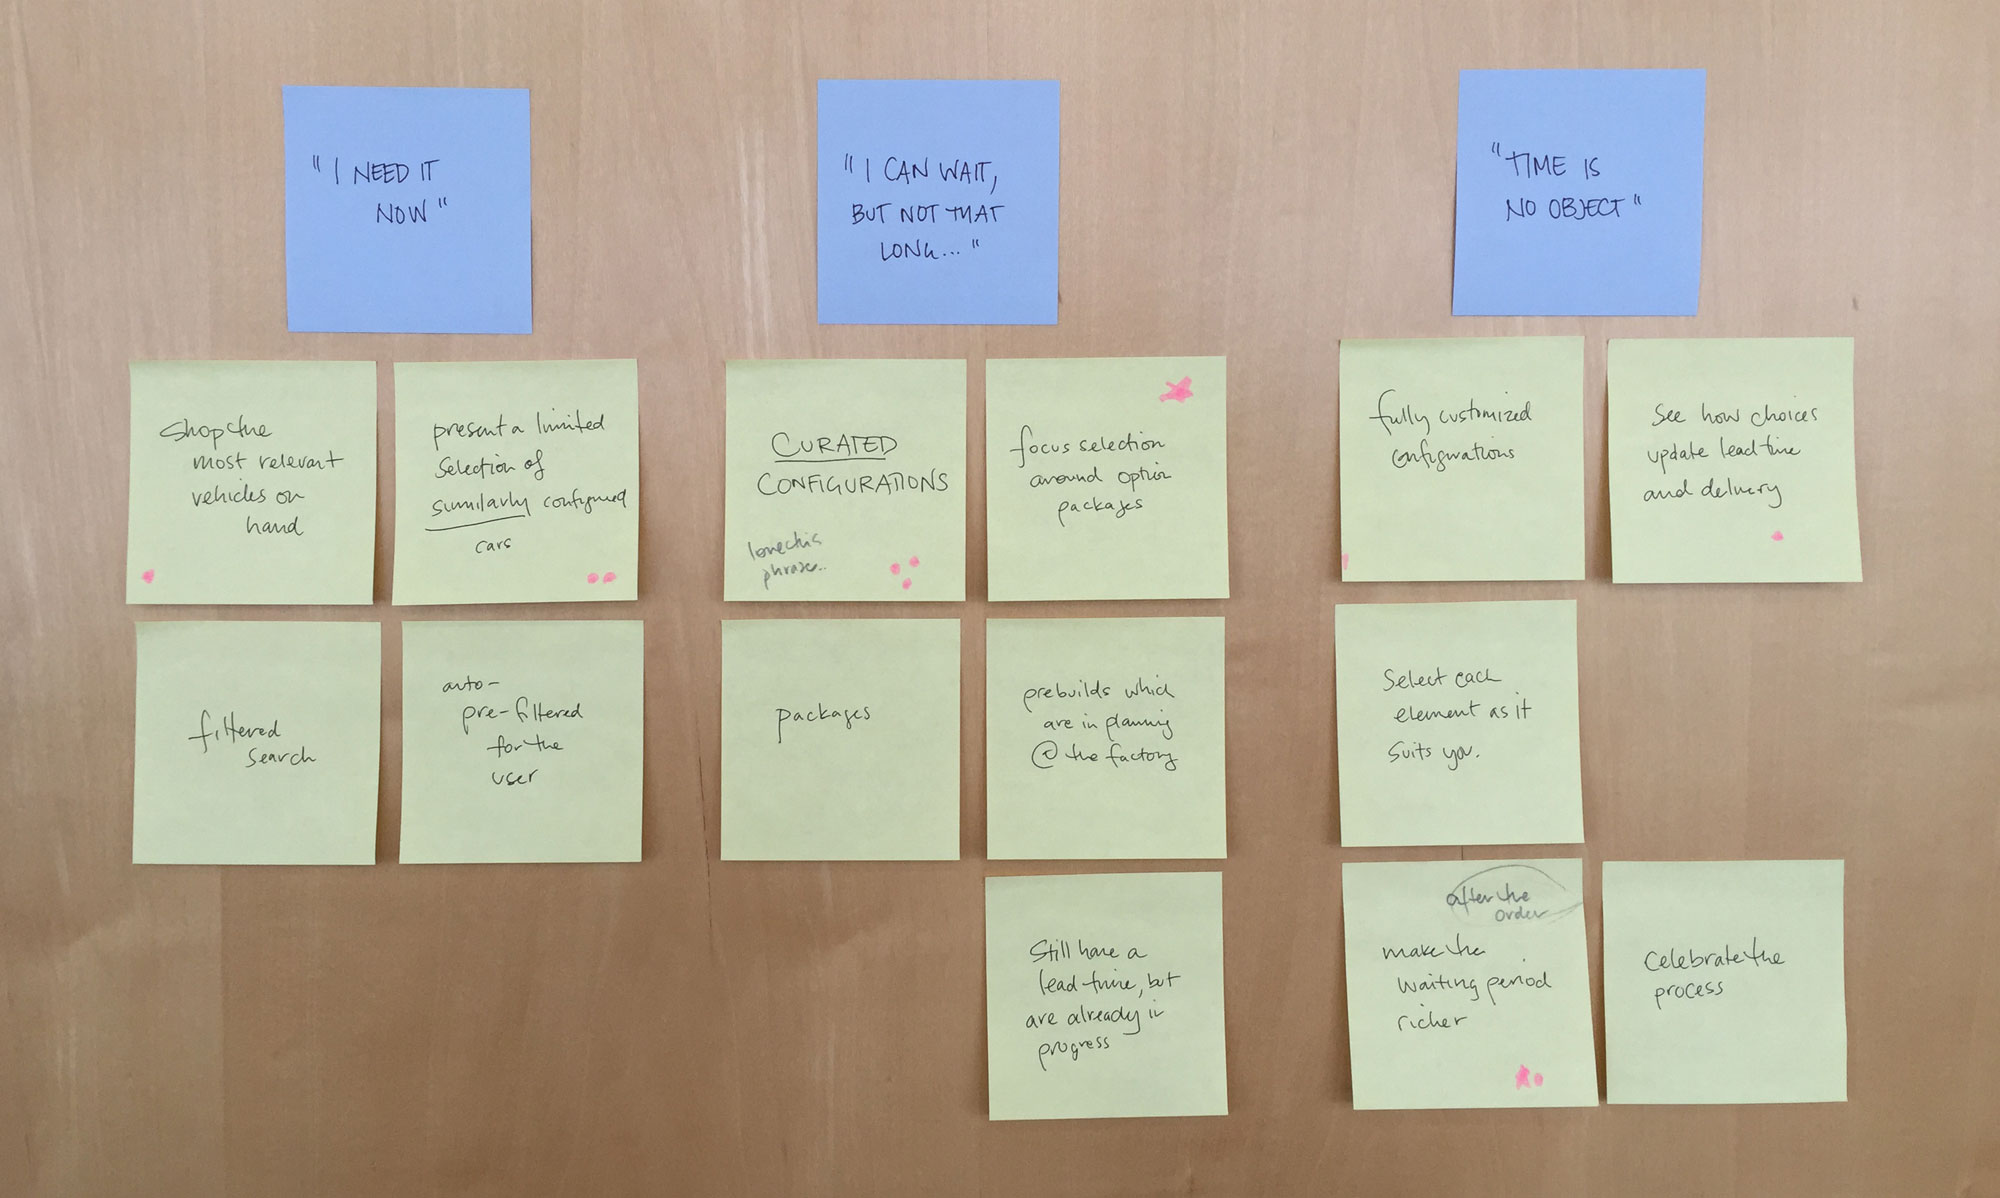 "I NEED IT
NOW"
"I CAN WAIT,
BUT NOT THAT
LONG..."
"TIME IS
NO OBJECT"
Shop the
most relevant
vehicles on
hand
present a limited
selection of
similarly configured
cars
filtered
search
auto-
pre-filtered
for the
user
CURATED
CONFIGURATIONS
love this
phrase..
focus selection
around option
packages
packages
prebuilds which
are in planning
@ the factory
Still have a
lead time, but
are already in
progress
fully customized
configurations
See how choices
update lead time
and delivery
Select each
element as it
suits you.
after the
order
make the
waiting period
richer
Celebrate the
process